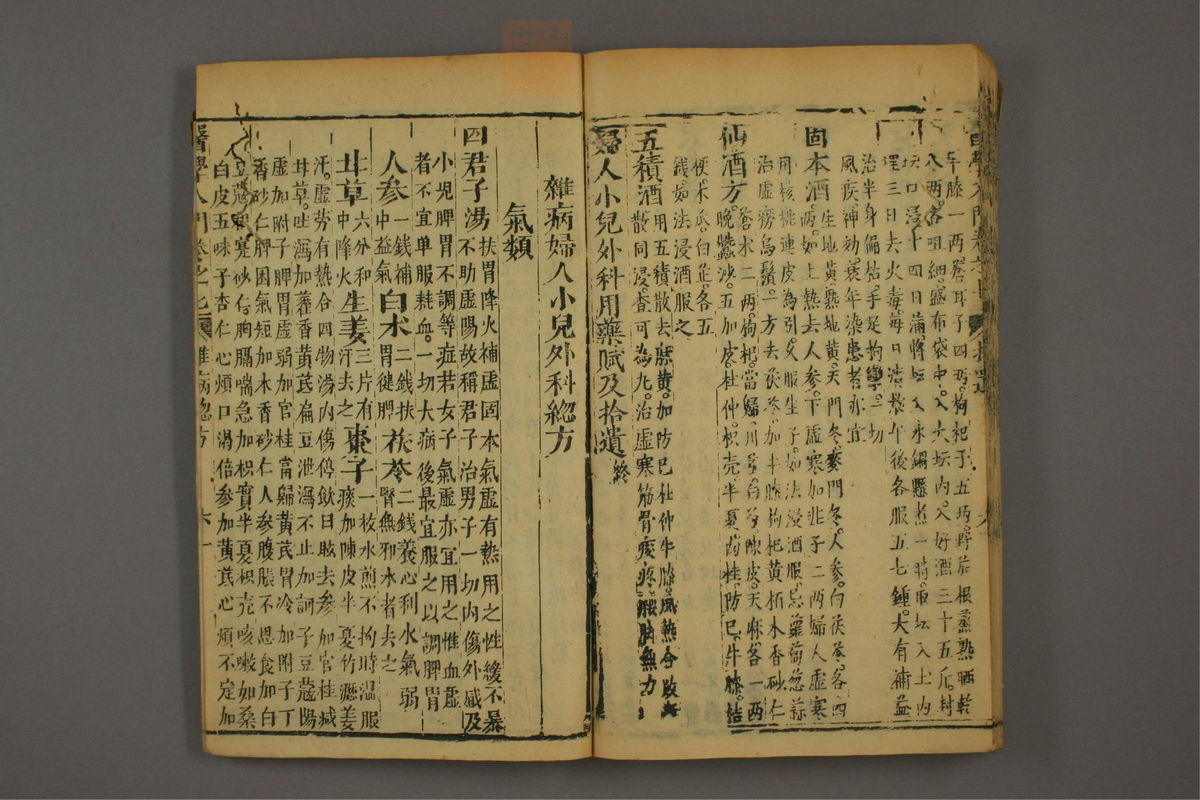 牛膝一兩蒼耳子四兩枸杞子五兩野茄根蒸熟晒乾
八兩各㕮細盛布袋中入大坛内入好酒三十五斤封
坛口浸十四日滿將坛入水鍋懸煮一時取坛入土内
埋三日去火毒每日清晨午後各服五七鍾大有補益
治半身偏枯手足拘攣一切
風疾神効衰年染患者亦宜
固本酒生地黄熟地黄天門冬麥門冬人參白茯苓各四
兩如上熱去人參下虛寒加韭子二兩婦人虛寒
用核桃連皮為引久服生子如法浸酒服忌蘿蔔葱蒜
治虛癆烏鬚一方去茯苓加牛膝枸杞黄栢木香砂仁
仙酒方蒼术二兩枸杞當歸川芎白芍陳皮天麻各一兩
晚蠶沙五加皮杜仲枳壳半夏肉桂防已牛膝桔
梗木瓜白芷各五
錢如法浸酒服之
五積酒用五積散去麻黄加防已杜仲牛膝風熱合敗毒
散同浸查可為丸治虛寒筋骨痠疼腰脚無力
婦人小兒外科用藥賦及拾遺終
雜病婦人小兒外科緫方
氣類
四君子湯扶胃降火補虛固本氣虛有熱用之性緩不暴
不助虛陽故稱君子治男子一切内傷外感及
小児脾胃不調等症若女子氣虛亦宜用之惟血虛
者不宜单服耗血一切大病後最宜服之以調脾胃
人參一錢補中益氣白术二錢扶胃健脾茯苓二錢養心利水氣弱腎無邪水者去之
甘草六分和中降火生姜三片有汗去之棗子一枚水煎不拘時温服痰加陳皮半夏竹瀝姜
汗虛労有熱合四物湯内傷停飲日眩去參加官桂減
甘草吐瀉加藿香黄芪扁豆泄瀉不止加訶子豆蔻陽
虛加附子脾胃虛弱加官桂當歸黄芪胃冷加附子丁
香砂仁脾困氣短加木香砂仁人參腹脹不思食加白
豆蔻枳寔砂仁胸膈喘急加枳實半夏枳壳咳嗽加桑
白皮五味子杏仁心煩口渴倍參加黄芪心煩不定加
醫學入門卷之七 雜病緫方 六一